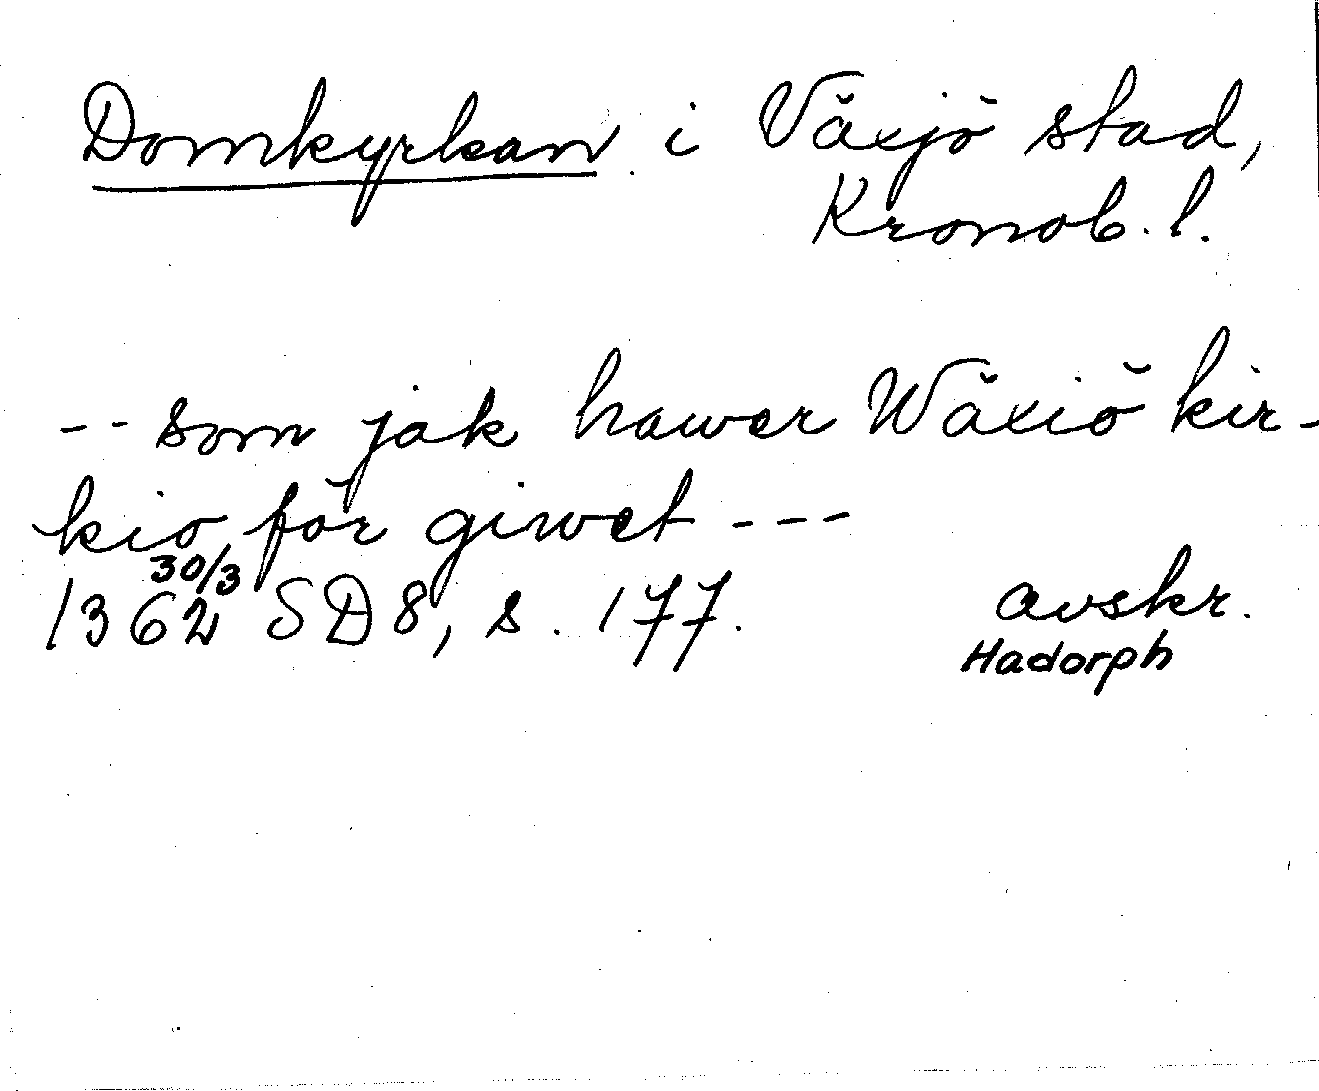 Domkyrkan i Växjö stad,
Kronob. l.
-- som jak hawer Wäxiö kir-
kio för giwet ---
1362 30/3 SD 8, s. 177.
avskr.
Hadorph